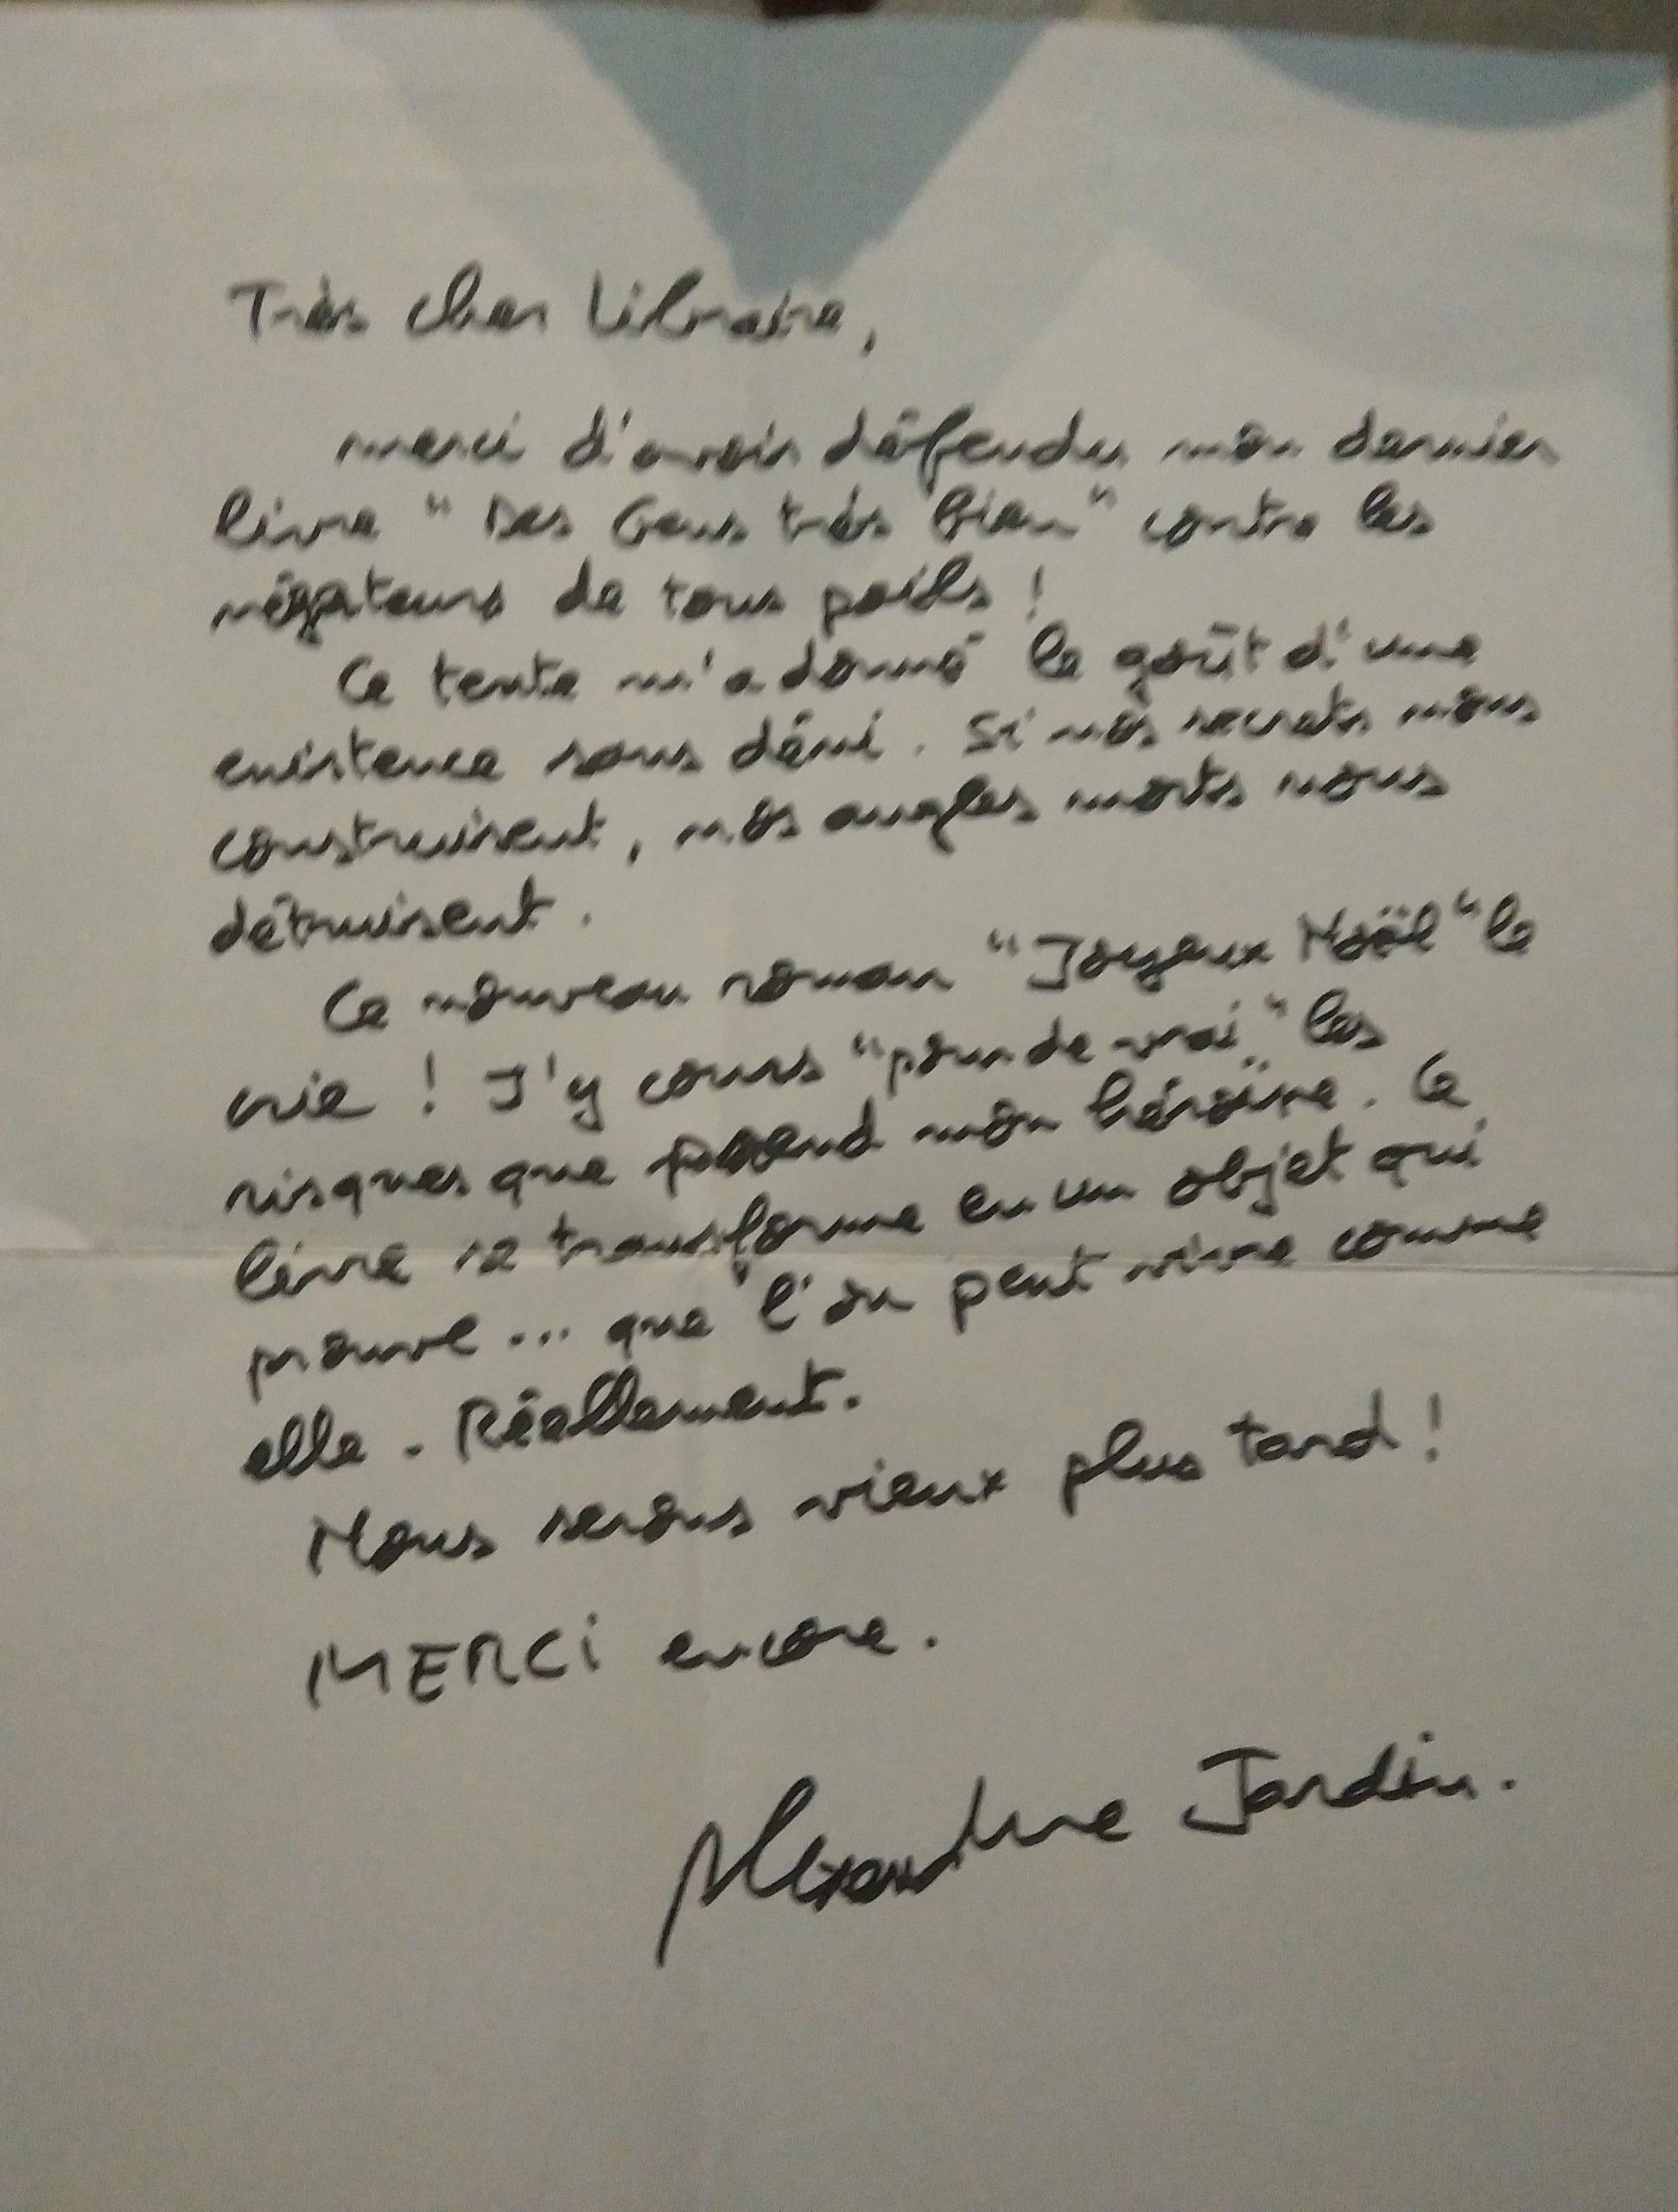 Très cher Libraire,
merci d'avoir défendu mon dernier
livre "Des Gens très bien" contre les
négateurs de tous poils !
Ce texte m'a donné le goût d'une
existence sans déni. Si nos secrets nous
construisent, nos angles morts nous
détruisent.
Ce nouveau roman "Joyeux Noël" le
crie ! J'y cours "pour de vrai" les
risques que prend mon héroïne. Ce
livre se transforme en un objet qui
prouve... que l'on peut vivre comme
elle. Réellement.
Nous serons vieux plus tard !
MERCi encore.
Alexandre Jardin.